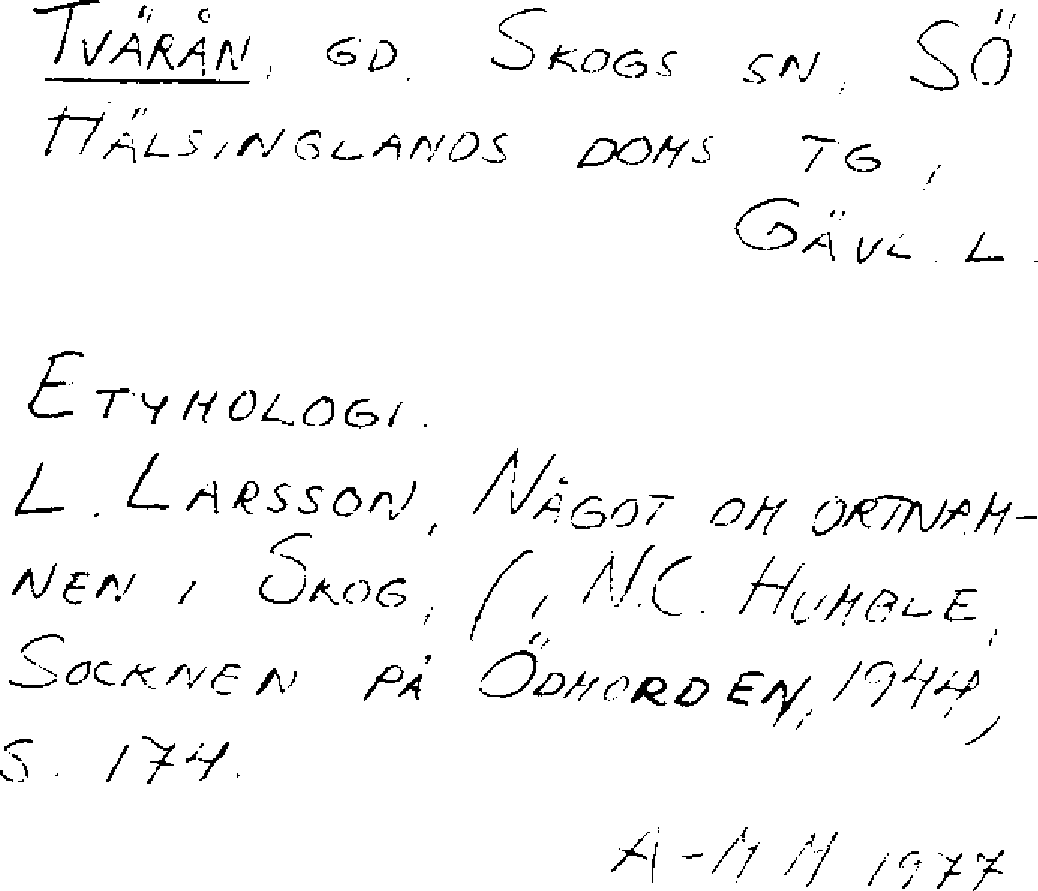 TVÄRÅN, GD. SKOGS SN, SÖ
HÄLSINGLANDS DOMS TG,
GÄVL. L.
ETYMOLOGI.
L. LARSSON, NÅGOT OM ORTNAM-
NEN I SKOG, (I N.C. HUMBLE,
SOCKNEN PÅ ÖDMORDEN, 1944,
S. 174.
A-M H 1977